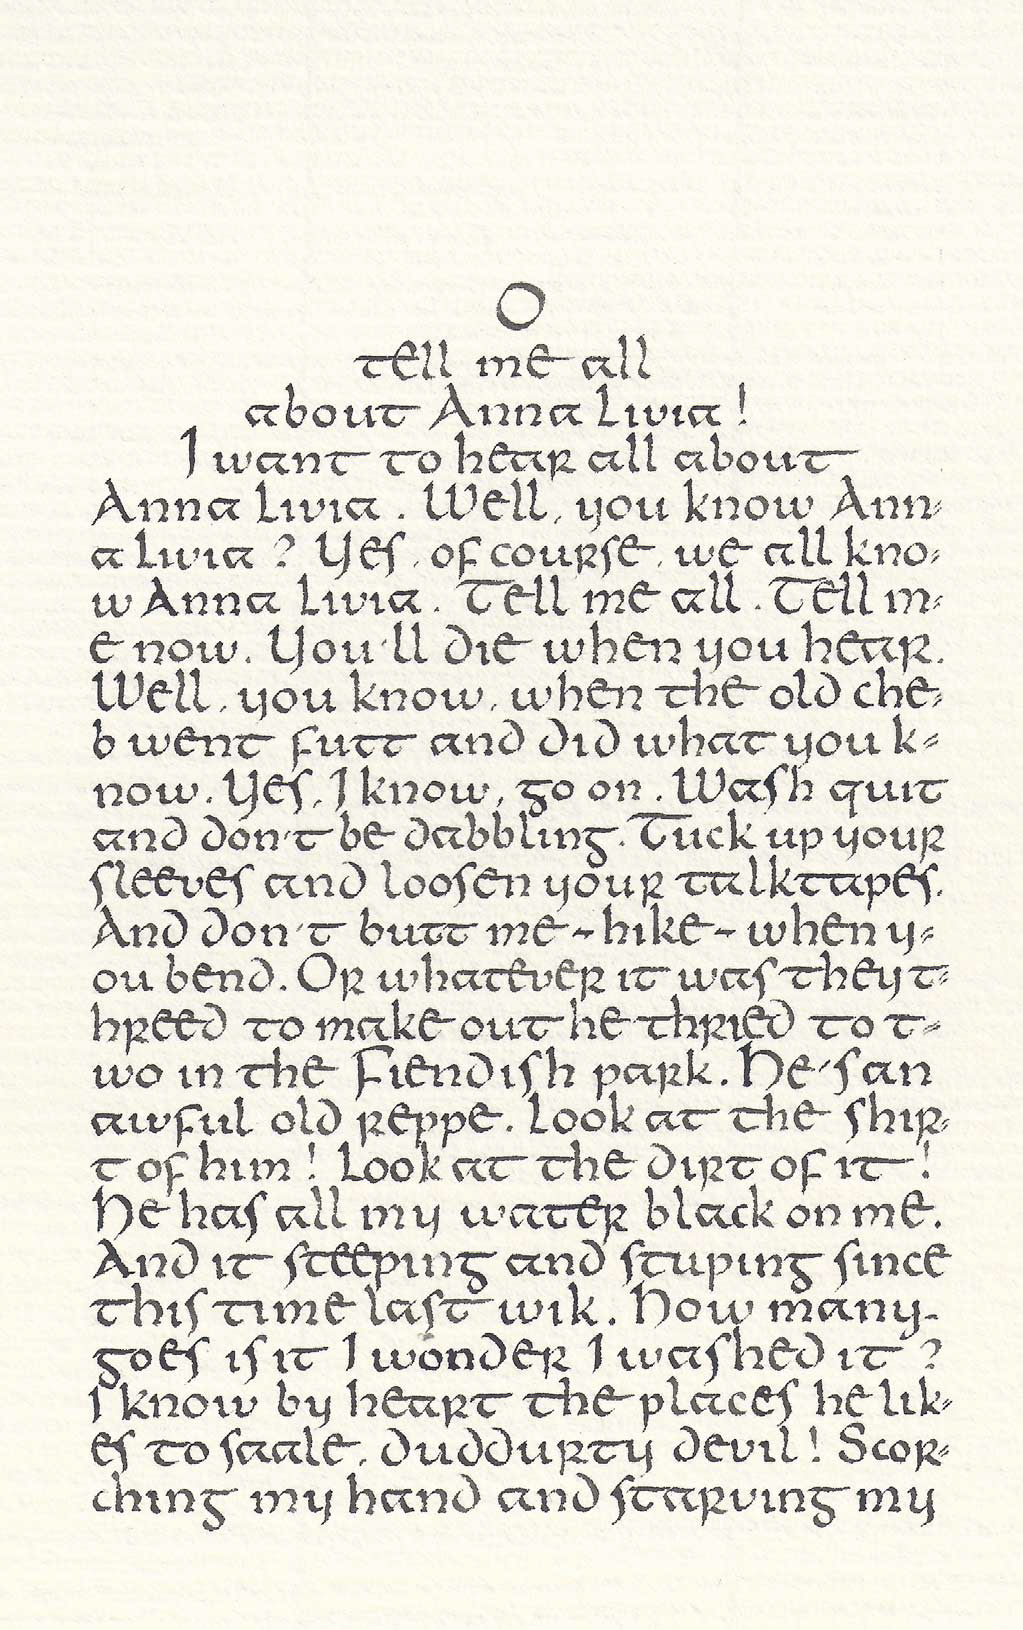 O
tell me all
about Anna Livia!
I want to hear all about
Anna Livia. Well, you know Ann-
a Livia? Yes, of course, we all kno-
w Anna Livia. Tell me all. Tell m-
e now. You'll die when you hear.
Well, you know, when the old che-
b went futt and did what you k-
now. Yes, I know, go on. Wash quit
and don't be dabbling. Tuck up your
sleeves and loosen your talktapes.
And don't butt me - hike - when y-
ou bend. Or whatever it was they t-
hreed to make out he thried to t-
wo in the Fiendish park. He's an
awful old reppe. Look at the shir-
t of him! Look at the dirt of it!
He has all my water black on me.
And it steeping and stuping since
this time last wik. How many-
goes is it I wonder I washed it?
I know by heart the places he lik-
es to saale, duddurty devil! Scor-
ching my hand and starving my